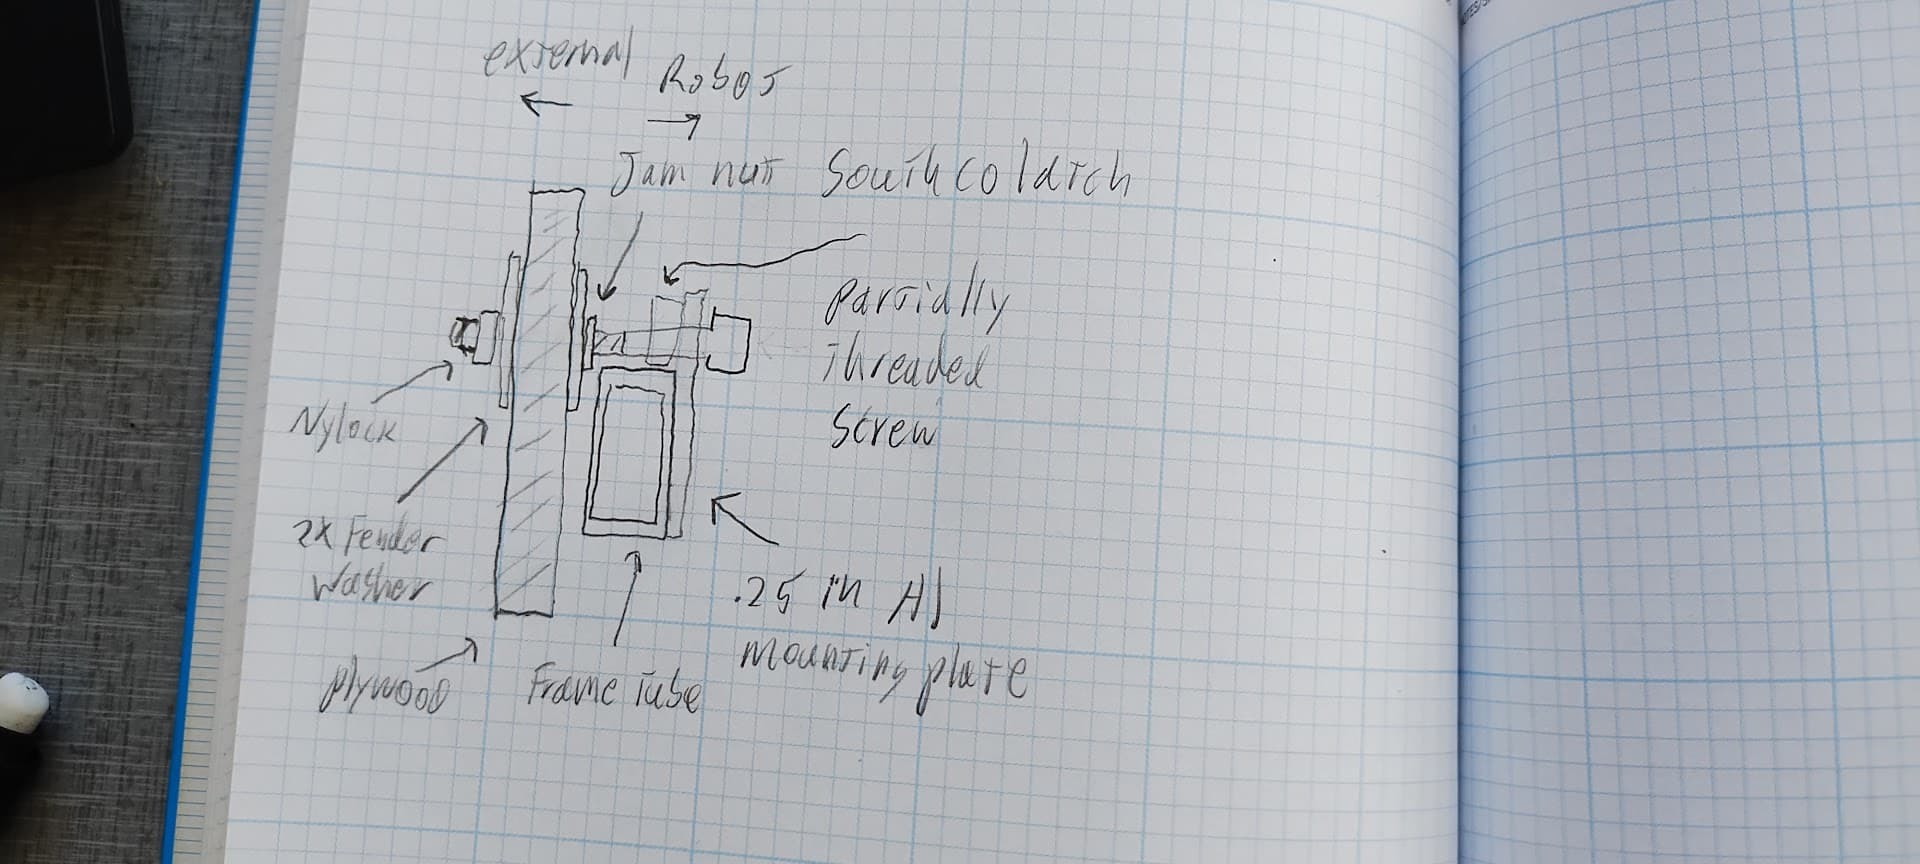 external
Robot
Jam nut
South co latch
partially
threaded
screw
Nylock
2x Fender
washer
.25 in Al
mounting plate
plywood
Frame Tube